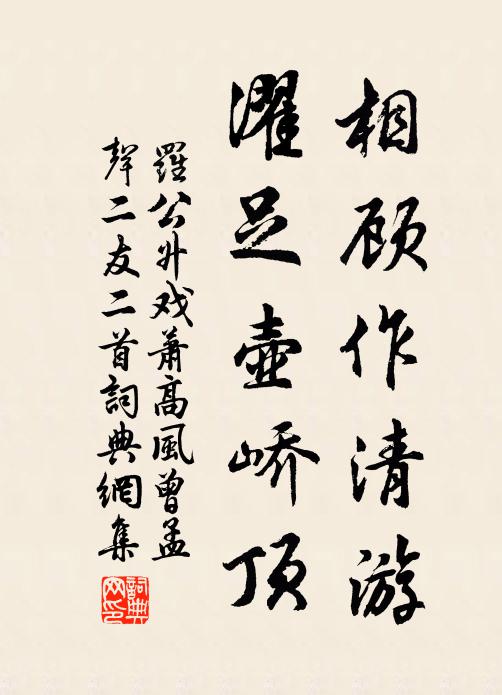 相顾作清游
濯足壶峤顶
羅公升戏萧高風曾孟
聲二友二首詞典網集
詞典
网印